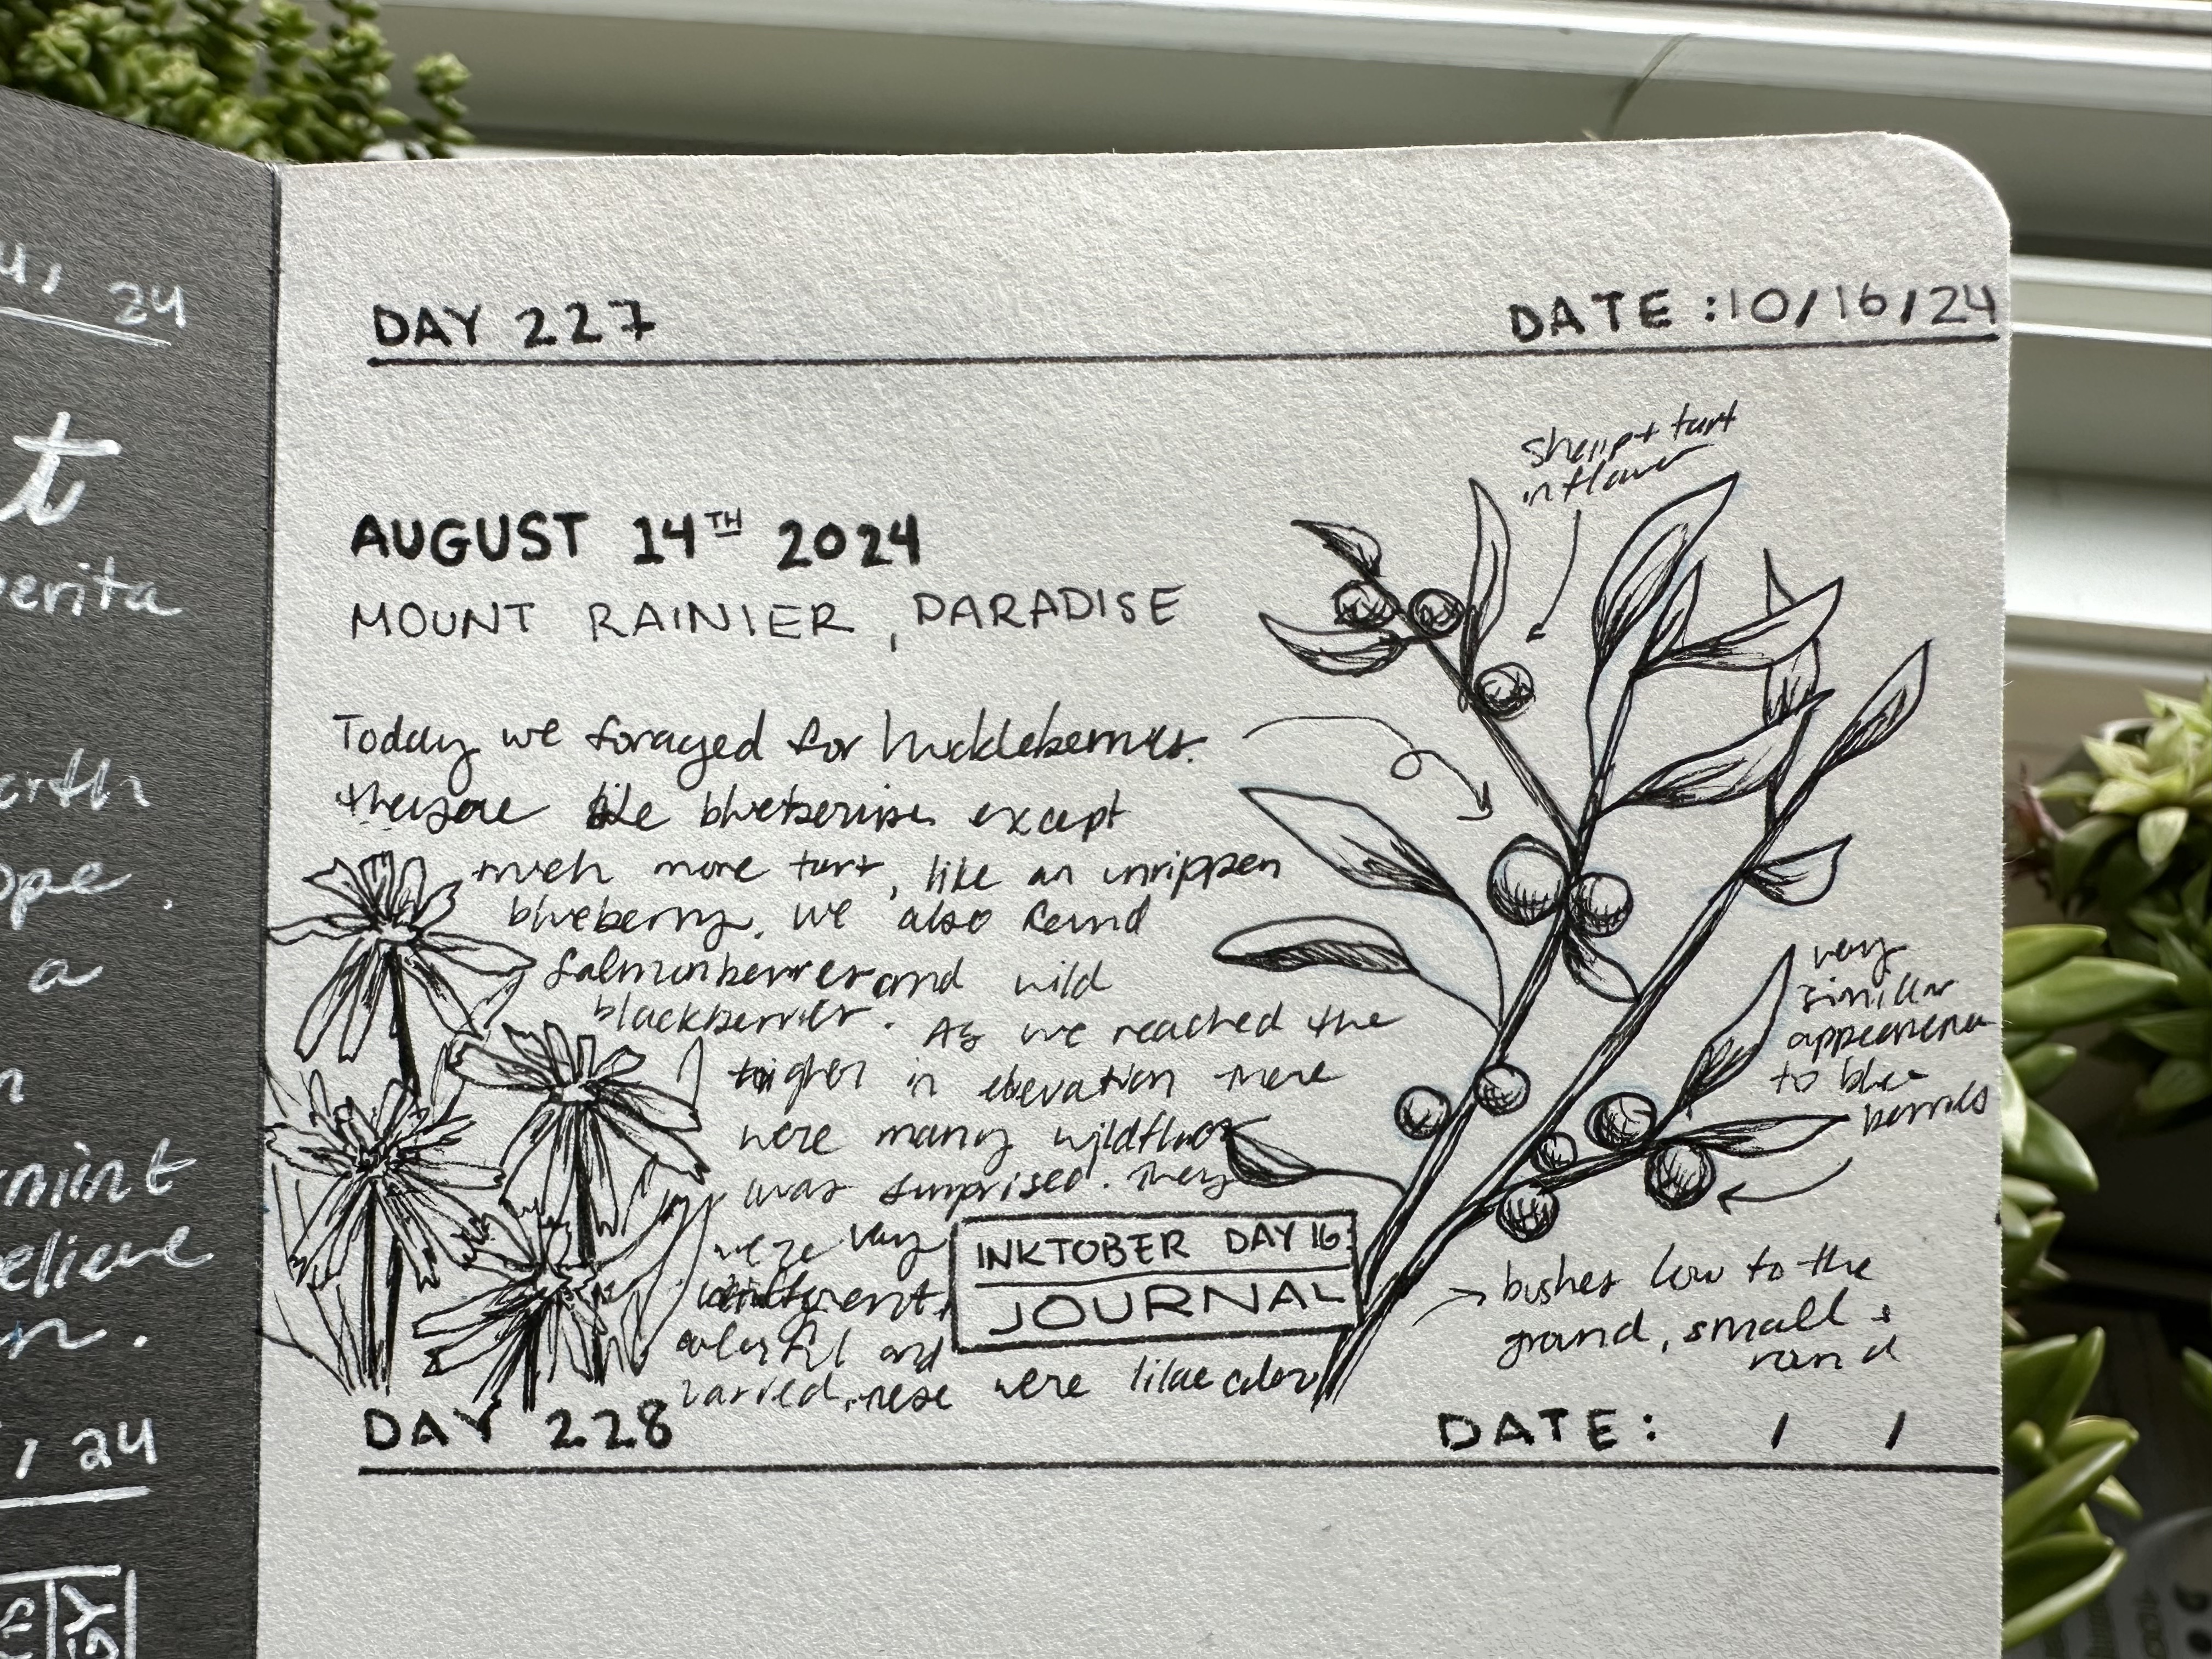 4, 24
t
perita
erth
ope.
a
n
mint
elieve
n.
, 24
GY
DAY 227 DATE: 10/16/24
Sharp + tart
in flavor
AUGUST 14TH 2024
MOUNT RAINIER, PARADISE
Today we foraged for huckleberries.
they are like blueberries except
much more tart, like an unrippen
blueberry. We also found
Salmonberries and wild
blackberries. As we reached the
higher in elevation there
were many wildflwor
was surprised. They
were very
different,
colorful and
varied. these were lilac color
very
similar
appearence
to blue
berries
INKTOBER DAY 16
JOURNAL
bushes low to the
ground, small +
round
DAY 228 DATE: / /